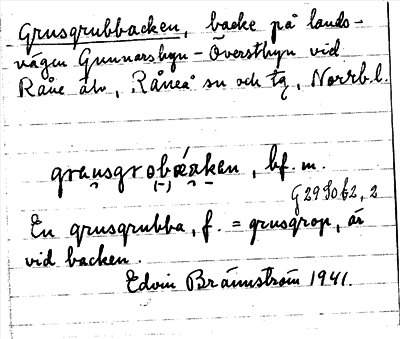 Grusgrubbacken, backe på lands-
vägen Gunnarsbyn - Överstbyn vid
Råne älv, Råneå sn och tg, Norrb.l.
bf. m.
En grusgrubba, f. = grusgrop, är
vid backen.
Edvin Brännström 1941.